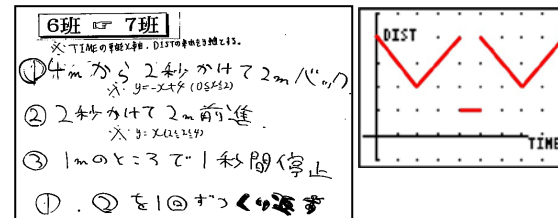 6班 ☞ 7班
※ TIMEの単位は秒、DISTの単位はmとする。
① 4mから2秒かけて2mバック
※ y=-x+4 (0≦x≦2)
② 2秒かけて2m前進
※ y=x (2≦x≦4)
③ 1mのところで1秒間停止
①、②を1回ずつくり返す
DIST
TIME